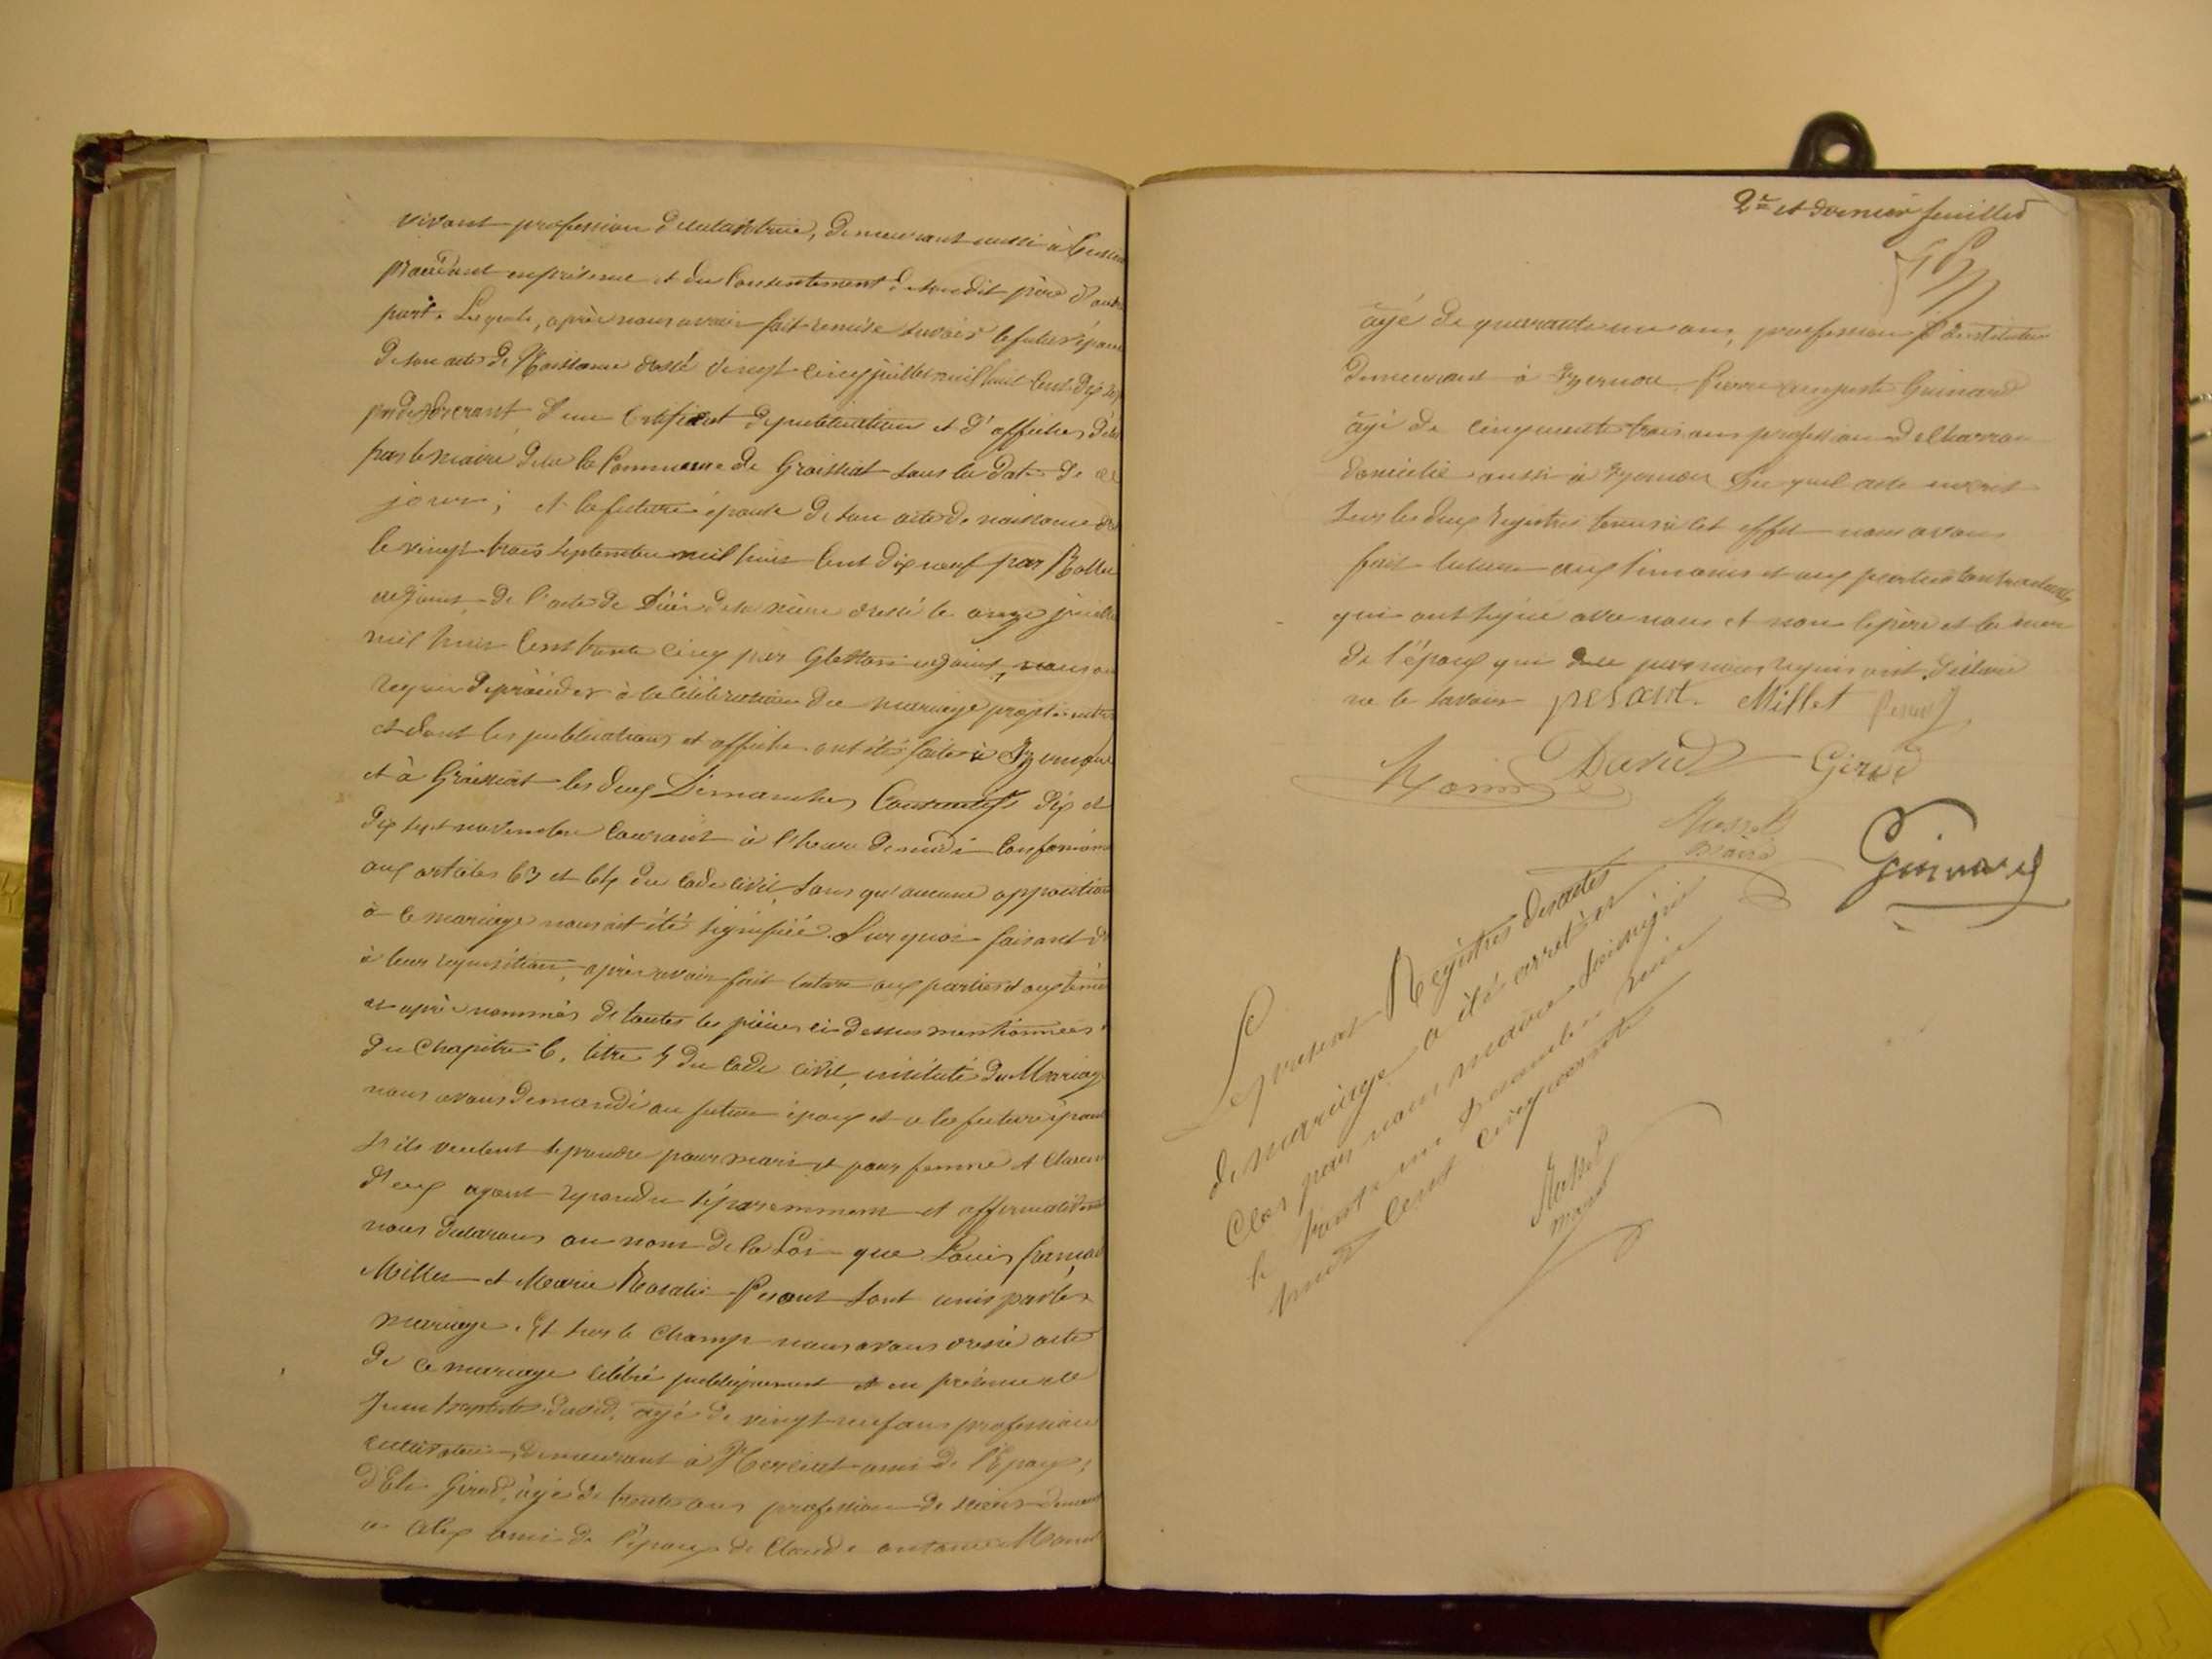 vivant profession de cultivatrice, demeurant aussi à
procédant en présence et du Consentement de son dit père d'autre
part. Lesquels, après nous avoir fait remise savoir le futur époux
de son acte de Naissance dressé vingt cinq juillet mil huit cent dix
d'un Certificat de publication et d'affiches
par le maire de la Commune de Groissiat sous la date de ce
jour; et la future épouse de son acte de naissance
le vingt trois septembre mil huit cent dix neuf par
adjoint de l'acte de Décès de sa mère dressé le onze juillet
mil huit cent trente cinq par adjoint, nous ont
requis de procéder à la célébration du mariage projeté entre
et dont les publications et affiches ont été faites à Izernore
et à Groissiat les deux Dimanches Consecutifs dix et
dix sept novembre courant à l'heure de midi Conformém
aux articles 63 et 64 du Code civil, sans qu'aucune opposition
à ce mariage nous ait été signifiée. Sur quoi faisant
à leur requisition, après avoir fait lecture aux parties et aux témoins
ci après nommés de toutes les pièces ci dessus mentionnées
du Chapitre 6, titre 5 du Code civil, intitulé du Mariage
nous avons demandé au futur époux et à la future épouse
s'ils veulent se prendre pour mari et pour femme et Chacun
d'eux ayant repondu séparemment et affirmativem
nous declarons au nom de la Loi que Louis françois
Millet et Marie Rosalie Pesant sont unis par le
mariage. Et sur le Champ nous avons dressé acte
de ce mariage célébré publiquement et en présence de
Jean baptiste david, agé de vingt neuf ans profession
cultivateur, demeurant à ami de l'Epoux;
d'Elie Girod, âgé de trente ans profession de demeurant
à Alex ami de l'époux de Claude antoine
2e et dernier feuillet
âgé de quarante un ans, profession d'instituteur
demeurant à Izernore Pierre auguste Guinard
âgé de cinquante trois ans profession de Charron
domicilié aussi à Izernore Du quel acte inscrit
sur les deux registres tenus à cet effet nous avons
fait lecture aux temoins et aux parties contractantes
qui ont signé avec nous et non le père et la mère
de l'époux qui de ce par nous requis ont déclaré
ne le savoir pesant. Millet Pesant
David Girod
Maire Guinard
Le present Registres des actes
de mariage a été arrêté et
Clos par nous maire soussigné
le trent un Décembre mil
huit Cent cinquante
maire